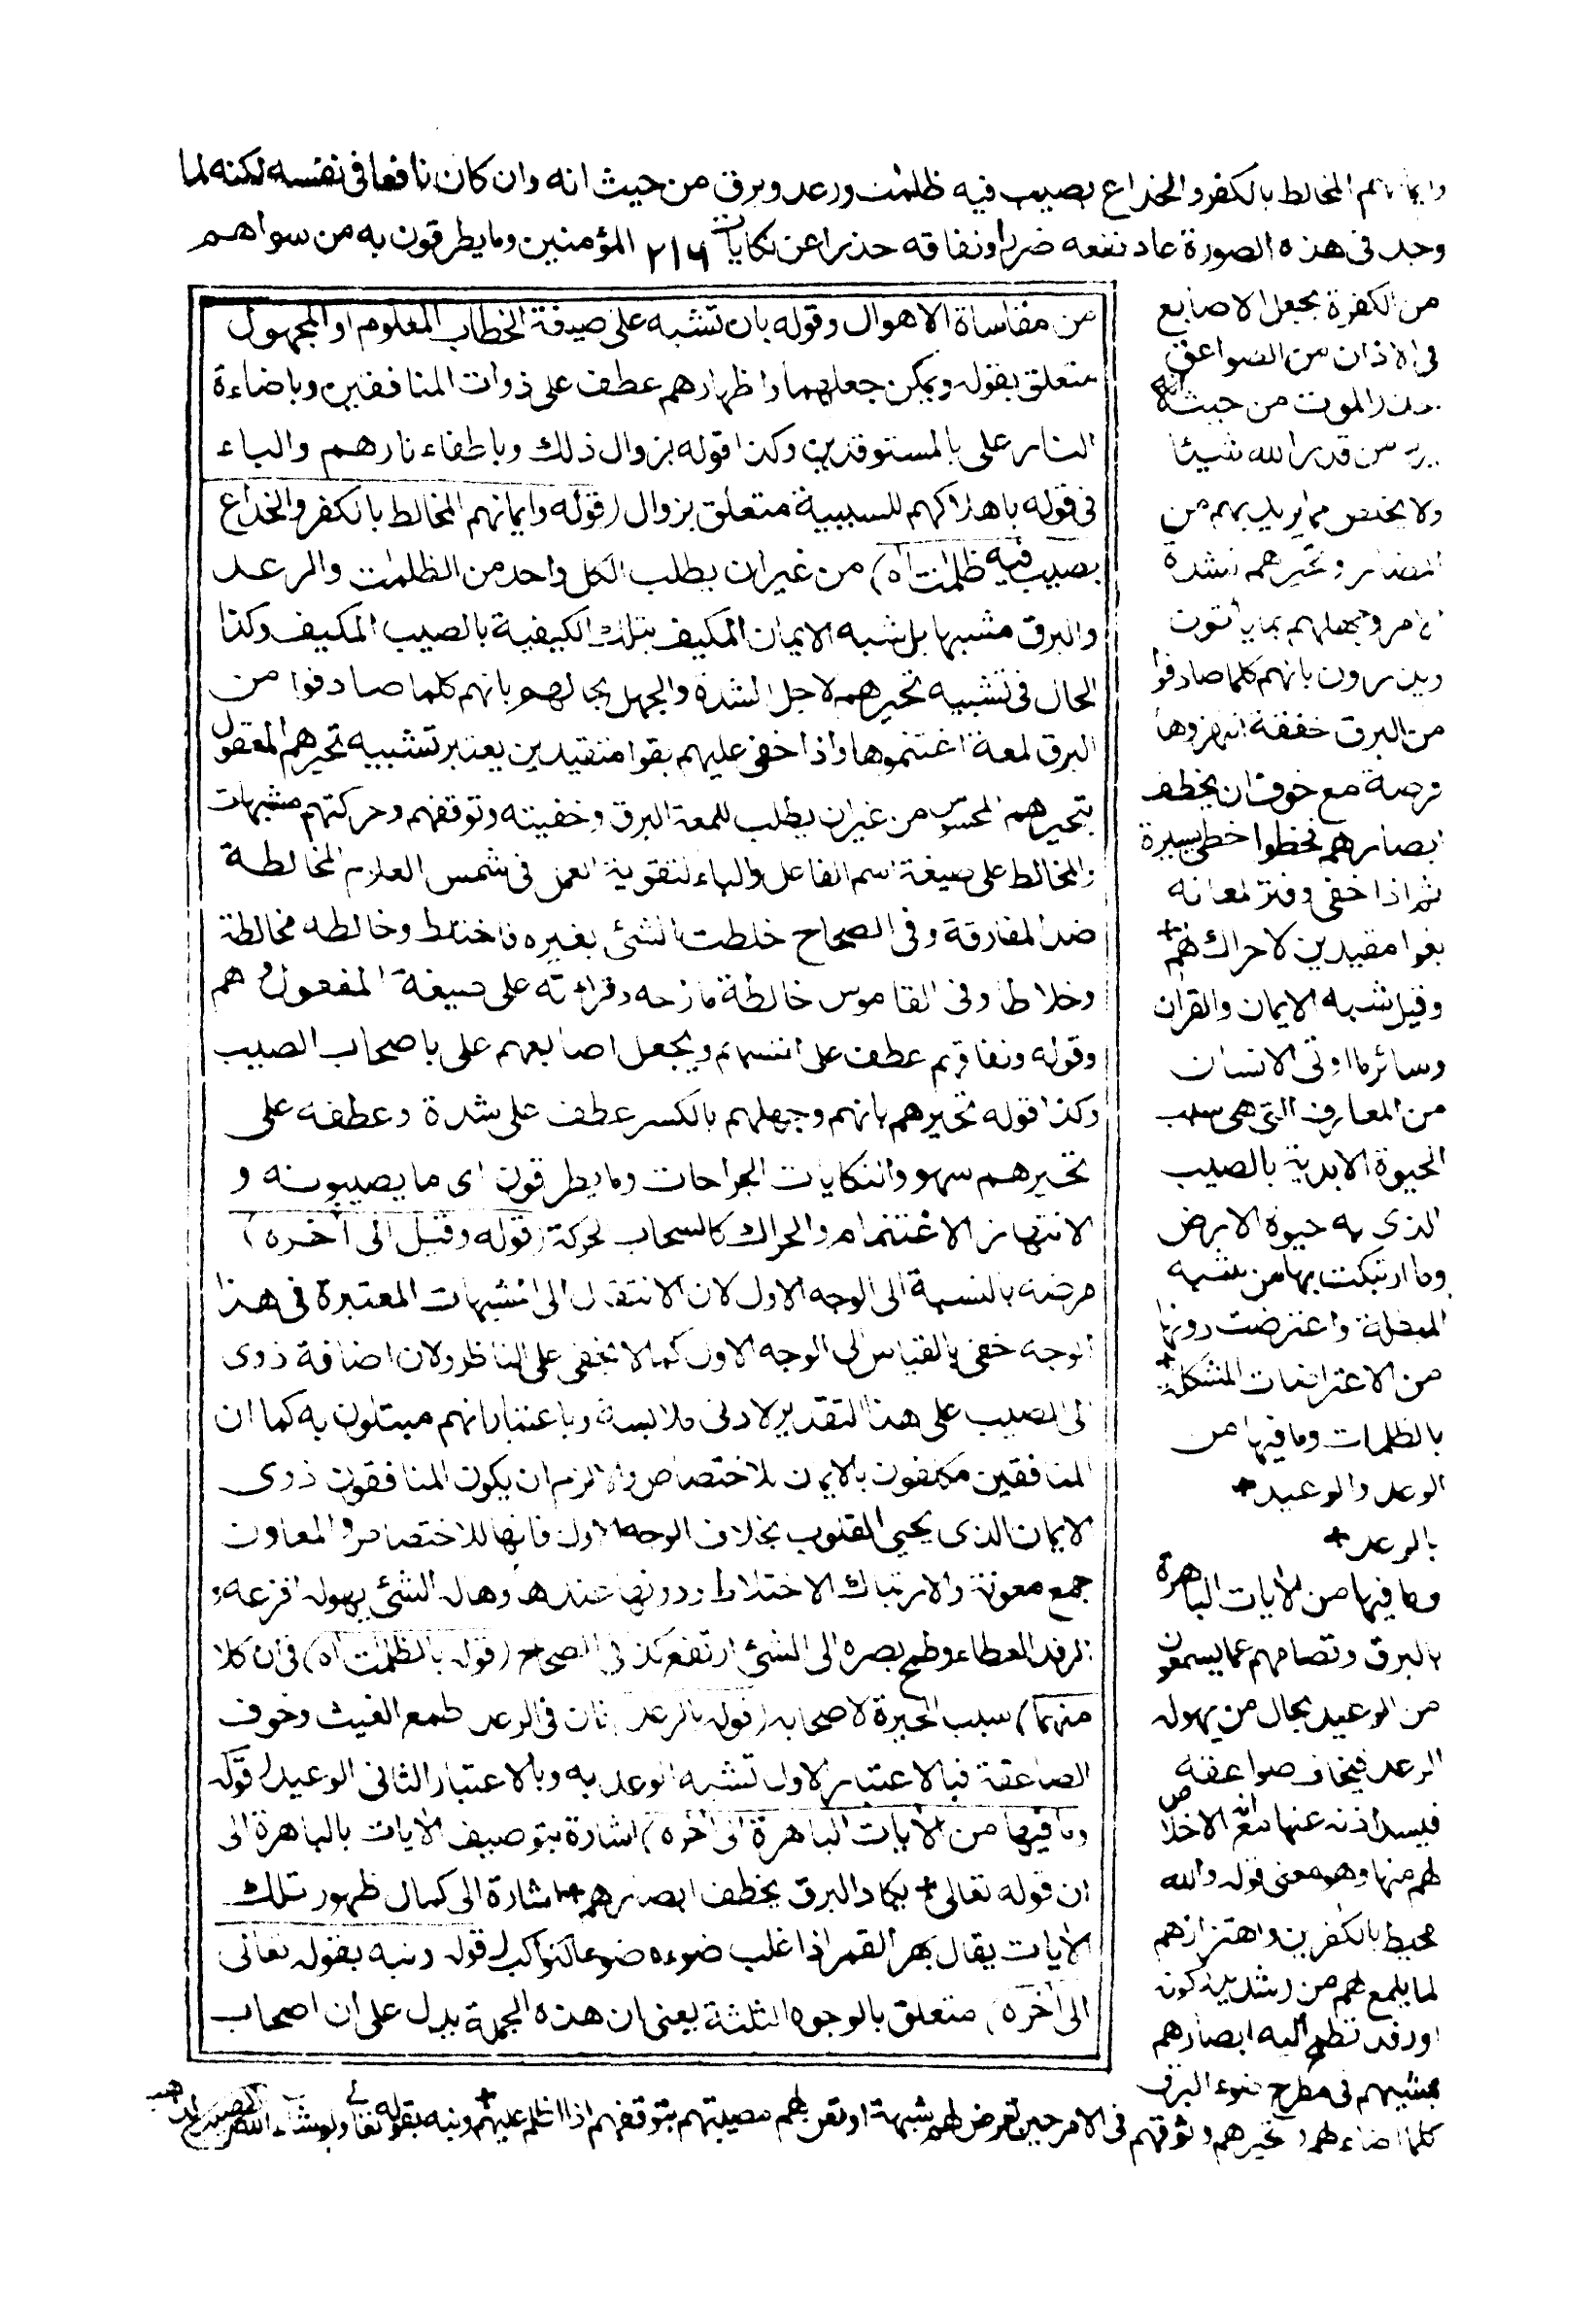 وايمانهم المخالط بالكفر والخداع بصيب فيه ظلمٰت ورعد وبرق من حيث انه وان كان نافعا فى نفسه لكنه لما
وجد فى هذه الصورة عاد نفعه ضرا ونفاقه حذرا عن نكايات ٢١٦ المؤمنين وما يطرقون به من سواهم
من الكفرة بجعل الاصابع
فى الاذان من الصواعق
حذر الموت من حيث انه
لا يرد من قدر الله شيئا
ولا يخلص مما يريد بهم من
المضار وتحيرهم لشدة
الامر وجهلهم بما يأتون
ويذرون بانهم كلما صادفوا
من البرق خفقة انتهزوها
فرصة مع خوف ان يخطف
ابصارهم فخطوا خطى يسيرة
ثم اذا خفى وفتر لمعانه
بقوا مقيدين لا حراك لهم +
وقيل شبه الايمان والقران
وسائر ما اوتى الانسان
من المعارف التى هى سبب
الحيوة الابدية بالصيب
الذى به حيوة الارض
وما ارتبكت بها من شبه
المبطلة واعترضت دونها
من الاعتراضات المشكلة +
بالظلمات وما فيها من
الوعد والوعيد +
بالرعد +
وما فيها من الآيات الباهرة
بالبرق وتصامهم عما يسمعون
من الوعيد بحال من يهوله
الرعد فيخاف صواعقه
فيسد اذنه عنها مع انه لا خلاص
لهم منها وهو معنى قوله والله
محيط بالكفرين واهتزازهم
لما يلمع لهم من رشد يدركونه
او رفد تطمح اليه ابصارهم
بمشيهم فى مطرح ضوء البرق
كلما اضاء لهم وتحيرهم وتوقفهم فى الامر حين تعرض لهم شبهة او تعن لهم مصيبة بتوقفهم اذا اظلم عليهم + ونبه بقوله تعالى ولو شاء الله
من مقاساة الاهوال وقوله بان تشبه على صيغة الخطاب المعلوم او المجهول
متعلق بقوله ويمكن جعلهما واظهارهم عطف على ذوات المنافقين وباضاءة
النار على بالمستوقدين وكذا قوله بزوال ذلك وباطفاء نارهم والباء
فى قوله باهلاكهم للسببية متعلق بزوال (قوله وايمانهم المخالط بالكفر والخداع
بصيب فيه ظلمٰت اه) من غير ان يطلب لكل واحد من الظلمٰت والرعد
والبرق مشبها بل شبه الايمان المكيف بتلك الكيفية بالصيب المكيف وكذا
الحال فى تشبيه تحيرهم لاجل الشدة والجهل بحالهم بانهم كلما صادفوا من
البرق لمعة اغتنموها واذا خفى عليهم بقوا متقيدين يعتبر تشبيه تحيرهم المعقول
بتحيرهم المحسوس من غير ان يطلب للمعة البرق وخفيته وتوقفهم وحركتهم مشبهات
والمخالط على صيغة اسم الفاعل والباء لتقوية العمل فى شمس العلوم المخالطة
ضد المفارقة وفى الصحاح خلطت الشئ بغيره فاختلط وخالطه مخالطة
وخلاطا وفى القاموس خالطة مازحه وقراءته على صيغة المفعول وهم
وقوله ونفاقهم عطف على انفسهم وبجعل اصابعهم على باصحاب الصيب
وكذا قوله تحيرهم بانهم وجهلهم بالكسر عطف على شدة وعطفه على
تحيرهم سهو والنكايات الجراحات وما يطرقون اى ما يصيبونه و
الانتهاز الاغتنام والحراك كالسحاب لحركة (قوله وقيل الى أخره)
مرضه بالنسبة الى الوجه الاول لان الانتقال الى المشبهات المعتبرة فى هذا
الوجه خفى بالقياس الى الوجه الاول كما لا يخفى على الناظر ولان اضافة ذوى
الى الصيب على هذا التقدير لادنى ملابسة وباعتبار انهم مبتلون به كما ان
المنافقين مكلفون بالايمان بلا اختصاص والا لزم ان يكون المنافقون ذوى
الايمان الذى يحيى القلوب بخلاف الوجه الاول فانها للاختصاص والمعاون
جمع معونة والارتباك الاختلاط ودونها عندها وهال الشئ يهوله افزعه و
الرفد العطاء وطمح بصره الى الشئ ارتفع كذا فى الصحاح (قوله بالظلمٰت اه) فى ان كلا
منهما سبب الحيرة لاصحابه (قوله بالرعد) فان فى الرعد طمع الغيث وخوف
الصاعقة فبالاعتبار الاول تشبه الوعد به وبالاعتبار الثانى الوعيد (قوله
وما فيها من الآيات الباهرة الى أخره) اشارة بتوصيف الآيات بالباهرة الى
ان قوله تعالى + يكاد البرق يخطف ابصارهم + اشارة الى كمال ظهور تلك
الآيات يقال بهر القمر اذا غلب ضوءه ضوء الكواكب (قوله ونبه بقوله تعالى
الى أخره) متعلق بالوجوه الثلثة يعنى ان هذه الجملة يدل على ان اصحاب